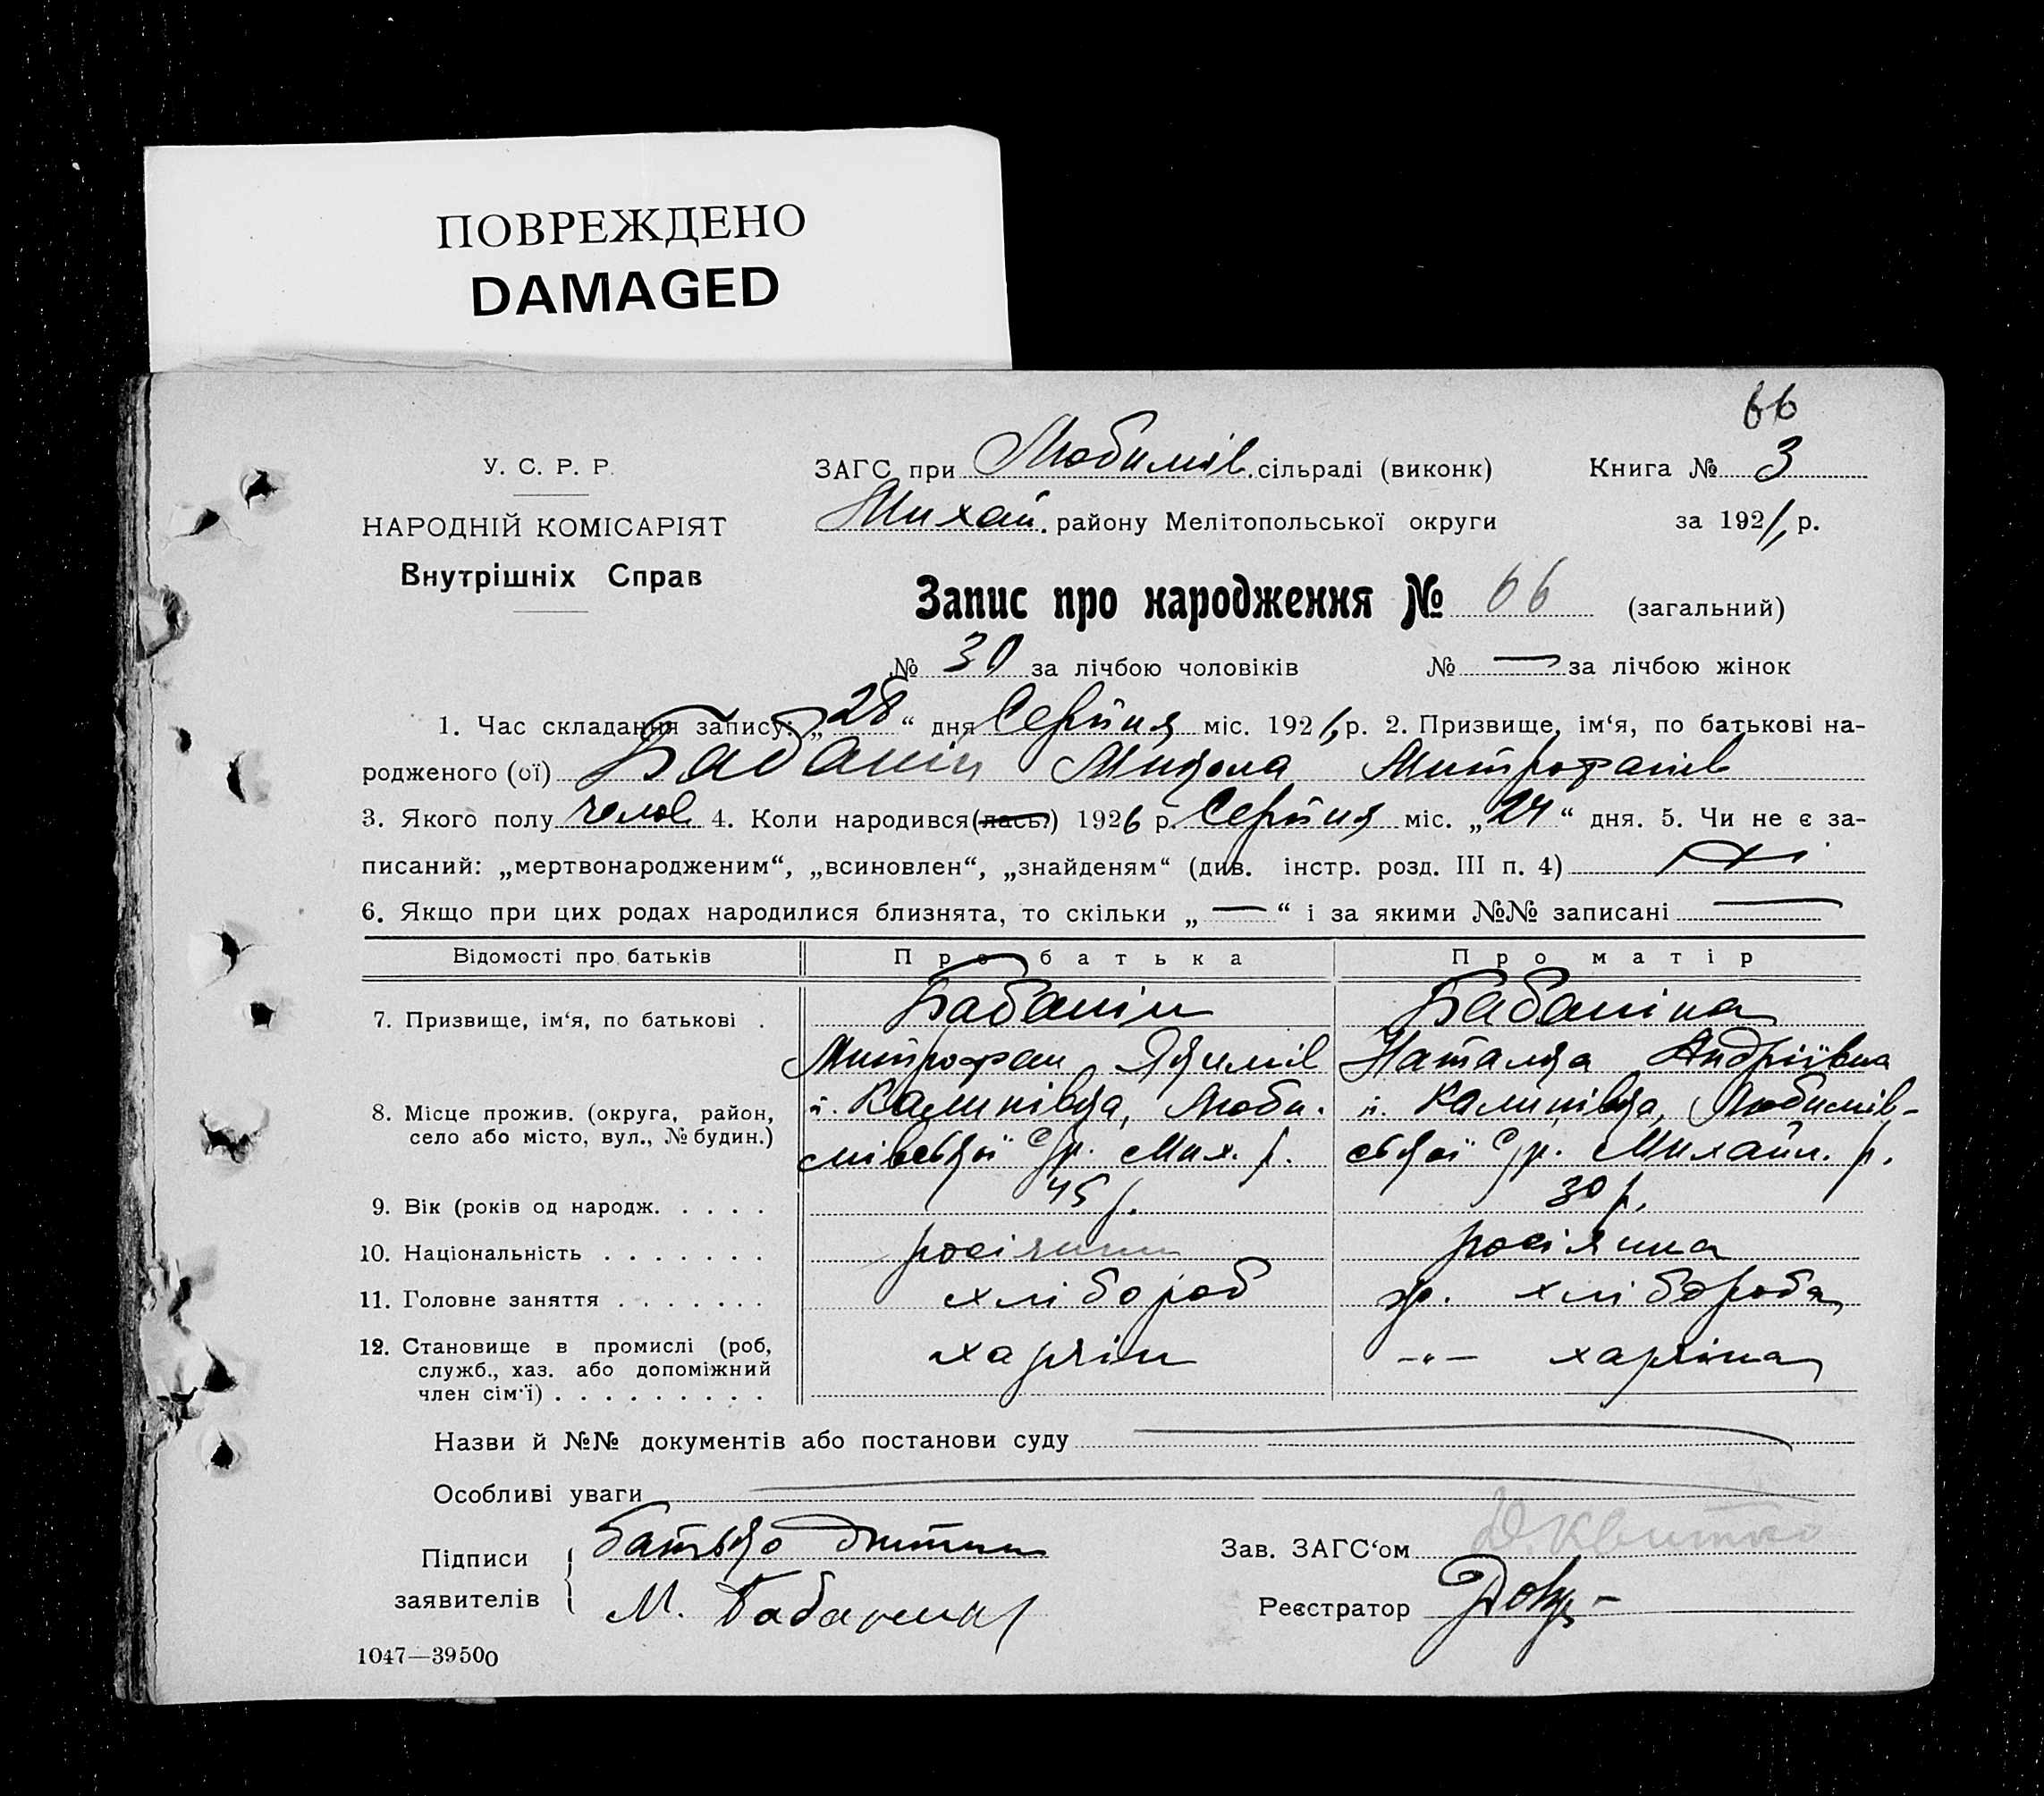 ПОВРЕЖДЕНО
DAMAGED
66
У. С. Р. Р.
НАРОДНІЙ КОМІСАРІЯТ
Внутрішніх Справ
ЗАГС при Любимів. сільраді (виконк)
Книга № 3
Михай. району Мелітопольської округи
за 1926 р.
Запис про народження № 66 (загальний)
№ 30 за лічбою чоловіків № — за лічбою жінок
1. Час складання запису: „28“ дня Серпня міс. 1926 р. 2. Призвище, ім‘я, по батькові на-
родженого (ої) Бабанін Микола Митрофанів
3. Якого полу чолов. 4. Коли народився(лась) 1926 р. Серпня міс. „24“ дня. 5. Чи не є за-
писаний: „мертвонародженим“, „всиновлен“, „знайденям“ (див. інстр. розд. III п. 4) Ні
6. Якщо при цих родах народилися близнята, то скільки „—“ і за якими №№ записані —
Відомості про батьків Про батька Про матір
7. Призвище, ім‘я, по батькові . Бабанін Бабаніна
Митрофан Якимів Наталка Андріївна
8. Місце прожив. (округа, район, село або місто, вул., № будин.)
с. Калинівка, Люби- с. Калинівка, Любимів-
мівської С/р. Мих. р. ської С/р. Михайл. р.
9. Вік (років од народж. . . . . 45 р. 30 р.
10. Національність . . . . . . . росіянин росіянка
11. Головне заняття . . . . . . . хлібороб хлібороба
12. Становище в промислі (роб, служб., хаз. або допоміжний член сім‘ї) . . . . . . . . .
хазяїн -"- хазяїна
Назви й №№ документів або постанови суду
Особливі уваги
Підписи заявителів { батько дитини
М. Бабанин
Зав. ЗАГС‘ом Д. Квитко
Реєстратор
1047—39500